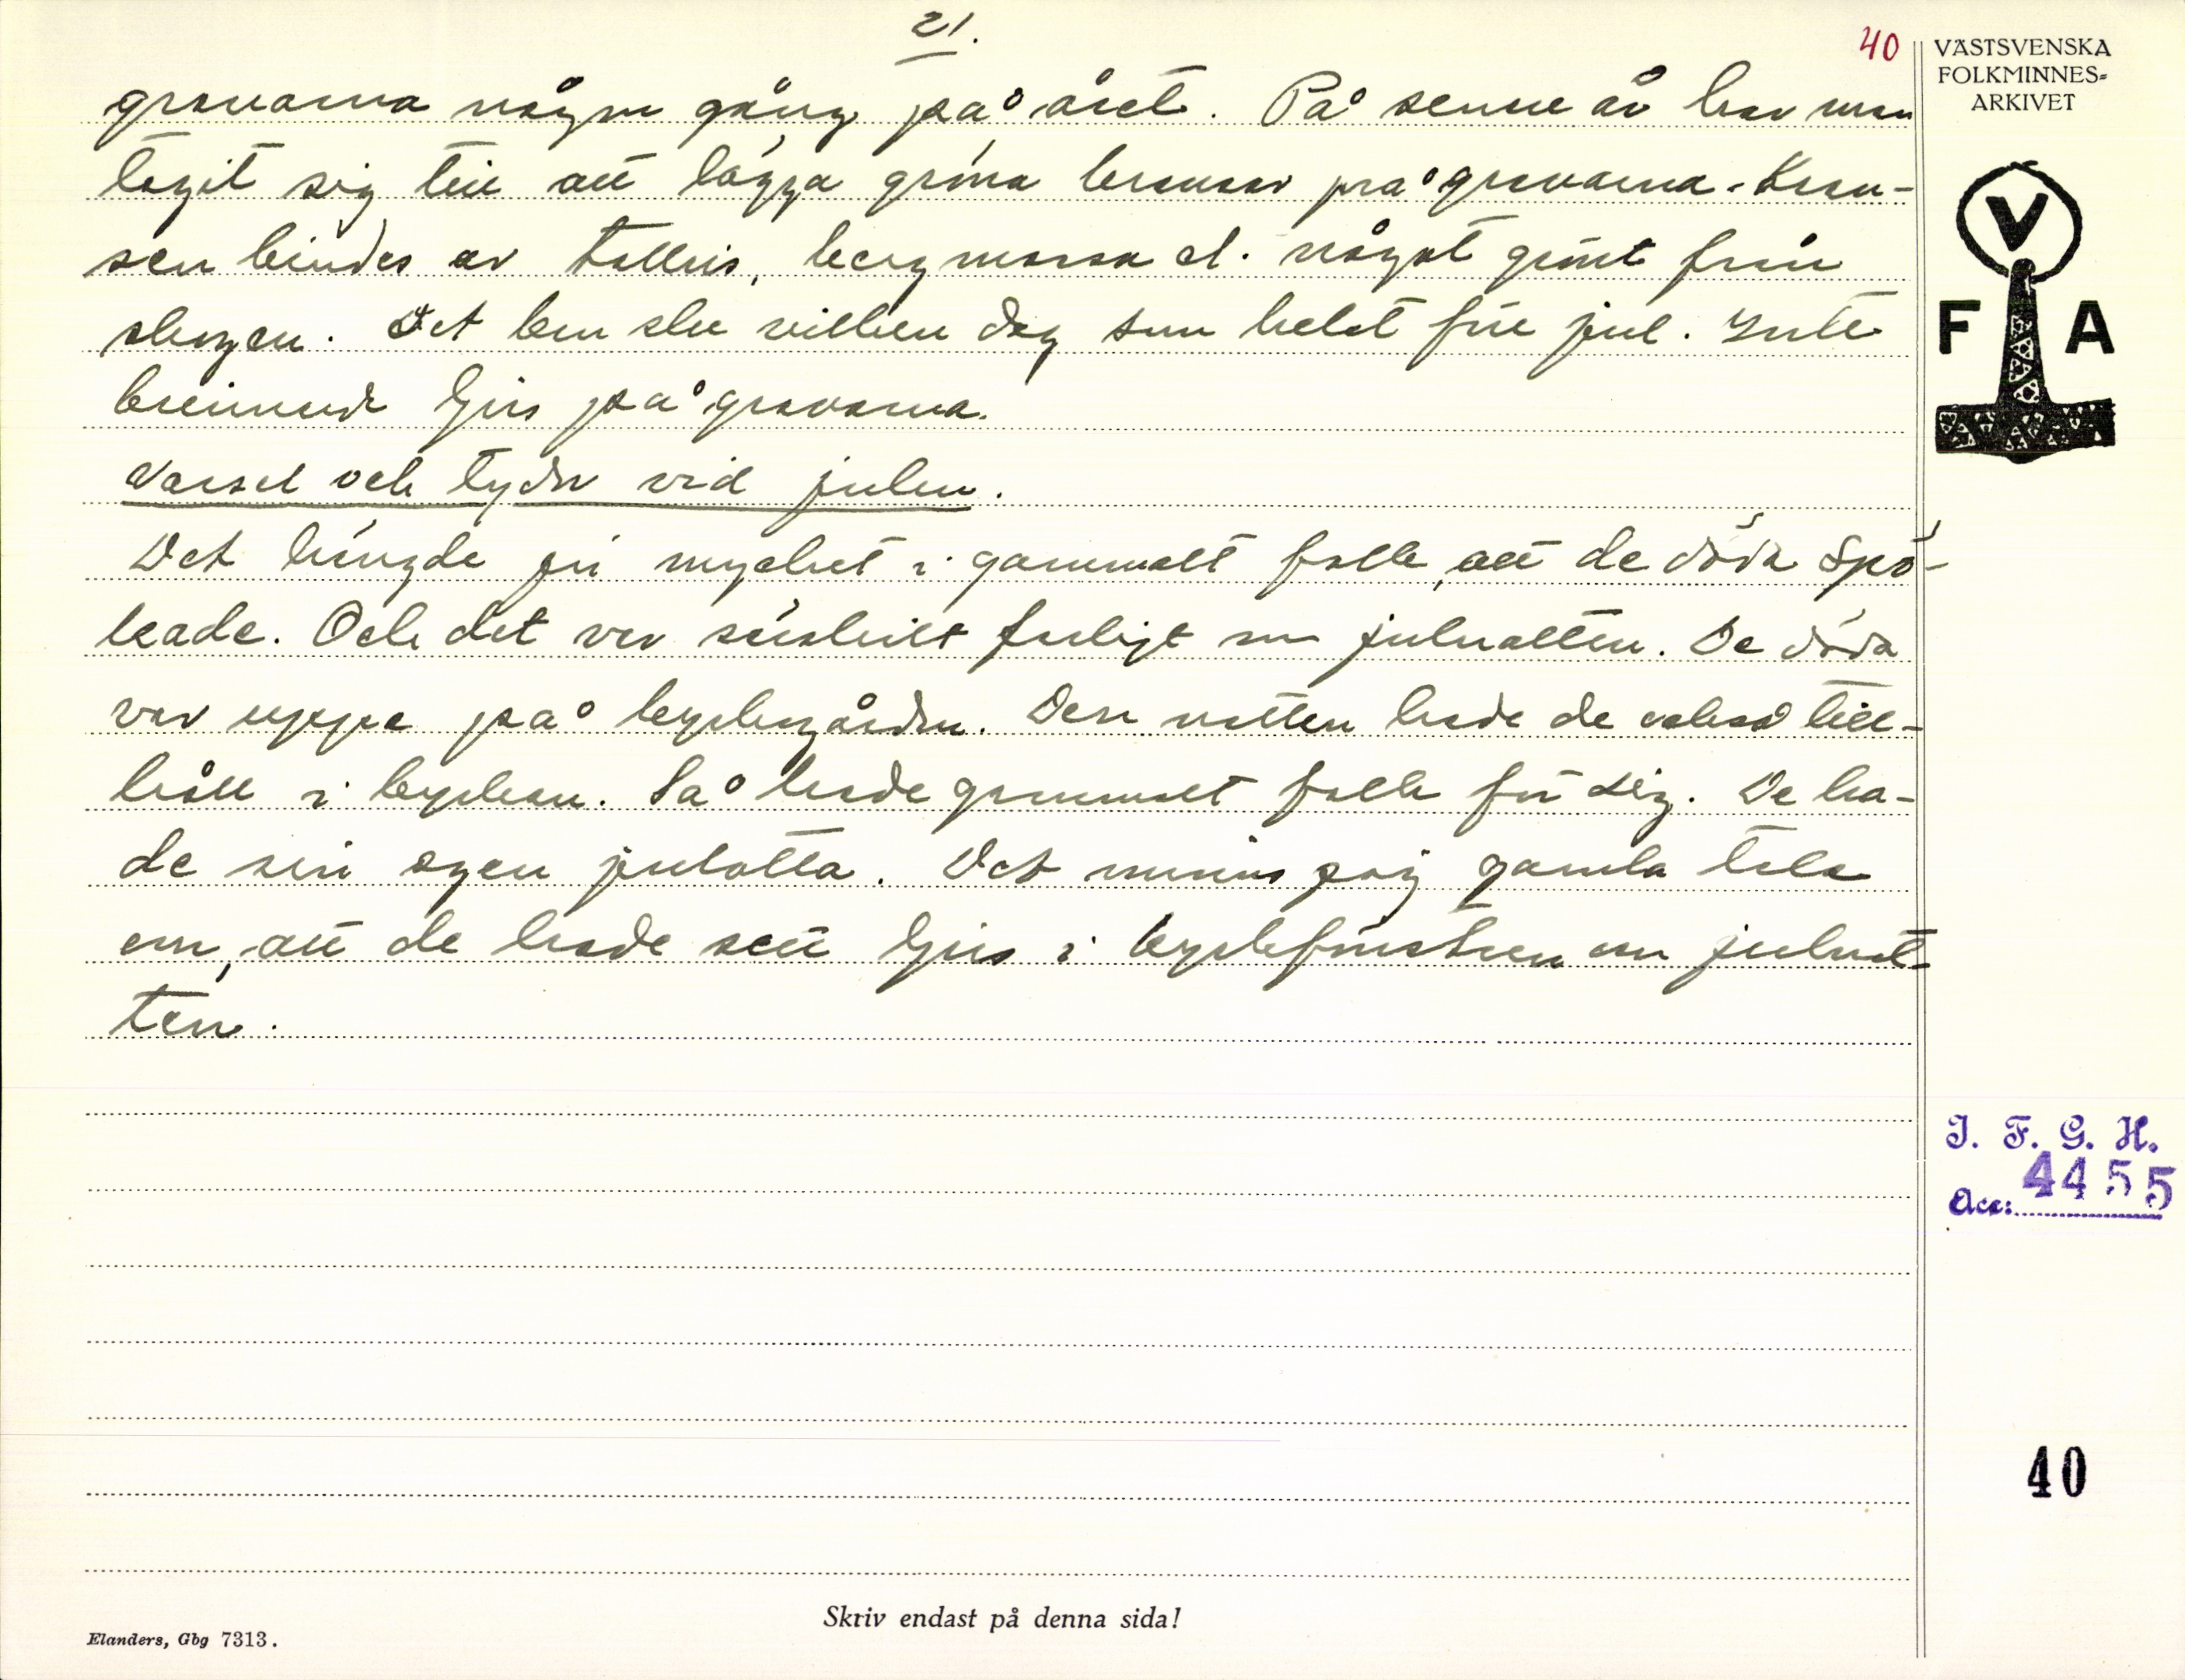 21.
40
VÄSTSVENSKA
FOLKMINNES-
ARKIVET
gravarna någon gång på året. På senare år har man
tagit sig till att lägga gröna kransar på gravarna. Kran-
sen bindes av tallris, bergmossa el. något grönt från
skogen. Det kan ske vilken dag som helst före jul. Inte
brinnande ljus på gravarna.
Varsel och tydor vid julen.
Det hängde för mycket i gammalt folk, att de döda spö-
kade. Och det var särskilt farligt om julnatten. De döda
var uppe på kyrkogården. Den natten hade de också till-
håll i kyrkan. Så hade gammalt folk för sig. De ha-
de sin egen julotta. Det minns jag gamla tala
om, att de hade sett ljus i kyrkfönstren om julnat-
ten.
V
F A
I. F. G. H.
Acc: 4455
40
Skriv endast på denna sida!
Elanders, Gbg 7313.